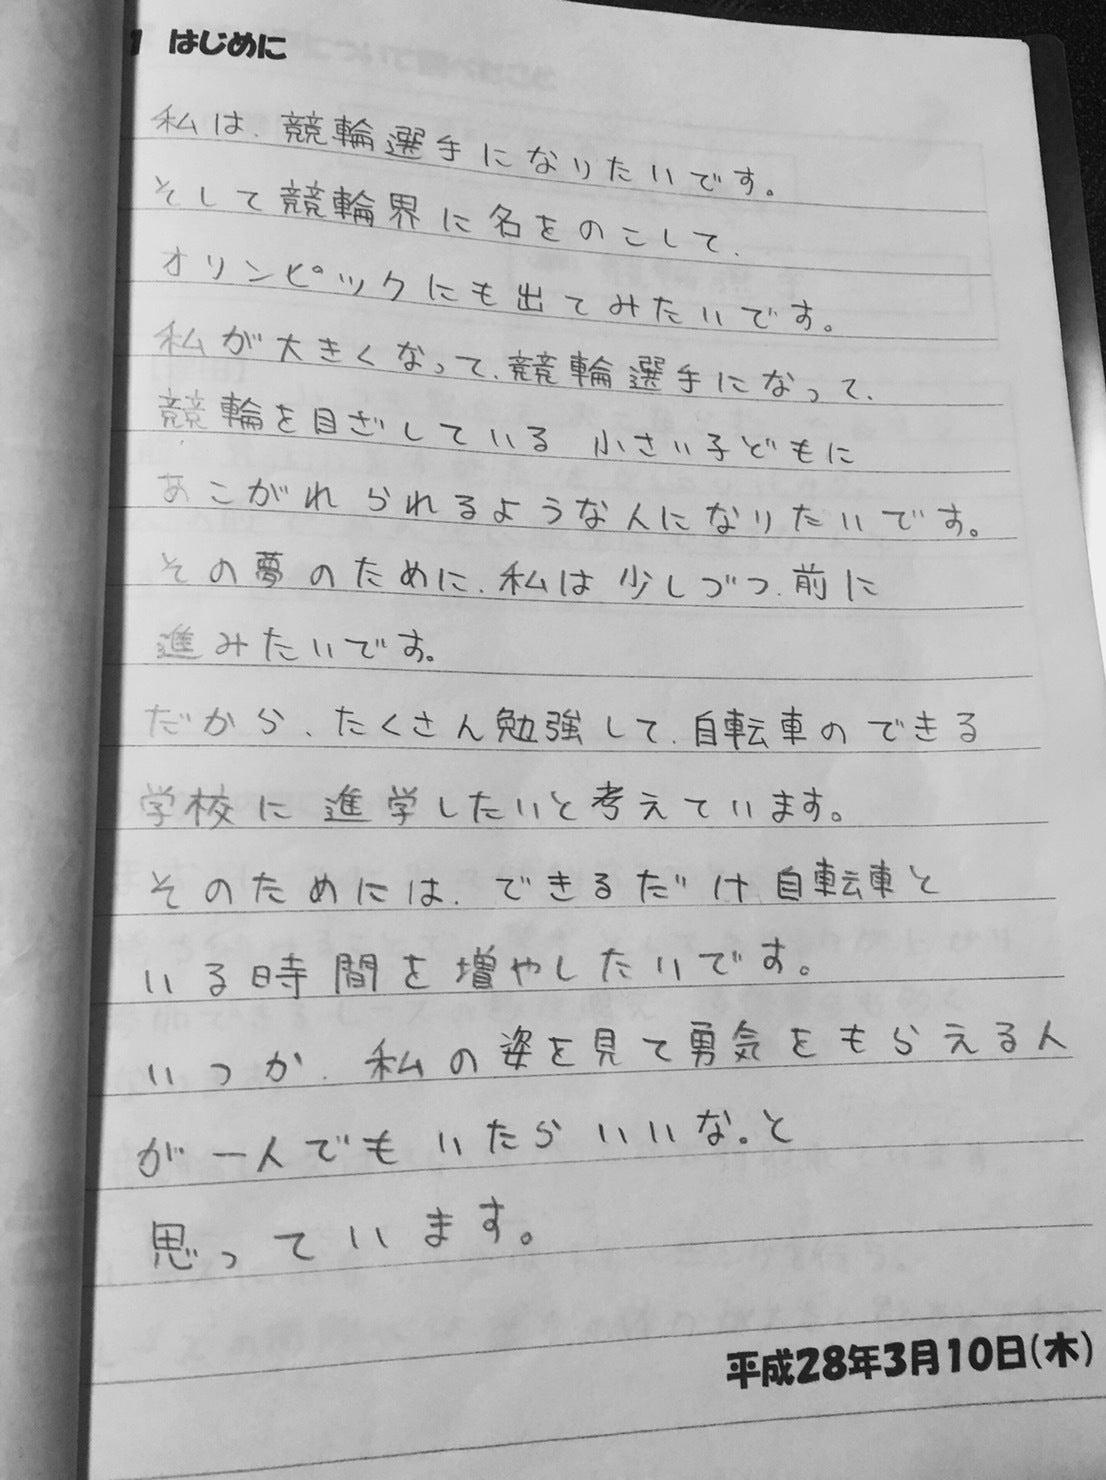 1 はじめに
私は、競輪選手になりたいです。
そして競輪界に名をのこして、
オリンピックにも出てみたいです。
私が大きくなって、競輪選手になって、
競輪を目ざしている 小さい子どもに
あこがれられるような人になりたいです。
その夢のために、私は少しづつ、前に
進みたいです。
だから、たくさん勉強して、自転車のできる
学校に進学したいと考えています。
そのためには、できるだけ自転車と
いる時間を増やしたいです。
いつか、私の姿を見て勇気をもらえる人
が一人でもいたらいいな。と
思っています。
平成28年3月10日(木)